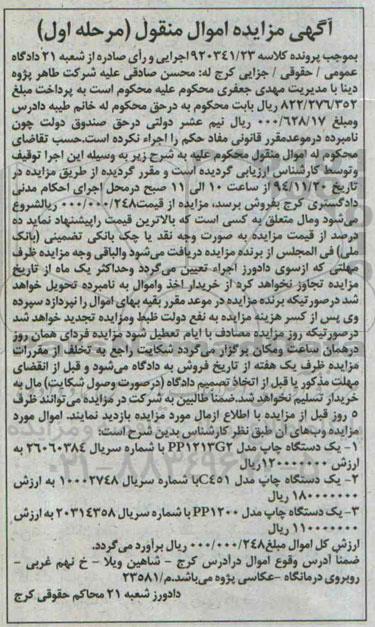 آگهی مزایده اموال منقول (مرحله اول)
بموجب پرونده کلاسه ۹۲۰۳۴۱/۲۳ اجرایی و رأی صادره از شعبه ۲۱ دادگاه
عمومی / حقوقی / جزایی کرج له: محسن صادقی علیه شرکت طاهر پژوه
دینا با مدیریت مهدی جعفری محکوم علیه محکوم است به پرداخت مبلغ
۸۲۲/۲۷۶/۳۵۲ ریال بابت محکوم به درحق محکوم له خانم طیبه دادرس
ومبلغ ۰۰۰/۶۲۸/۱۷ ریال نیم عشر دولتی درحق صندوق دولت چون
نامبرده درموعدمقرر قانونی مفاد حکم را اجراء نکرده است.حسب تقاضای
محکوم له اموال منقول محکوم علیه به شرح زیر به وسیله این اجرا توقیف
وتوسط کارشناس ارزیابی گردیده است و مقرر گردیده از طریق مزایده در
تاریخ ۹۴/۱۱/۲۰ از ساعت ۱۰ الی ۱۱ صبح درمحل اجرای احکام مدنی
دادگستری کرج بفروش برسد، مزایده از قیمت۰۰۰/۰۰۰/۲۴۸ ریالشروع
می‌شود ومال متعلق به کسی است که بالاترین قیمت راپیشنهاد نماید ده
درصد از قیمت مزایده به صورت وجه نقد یا چک بانکی تضمینی (بانک
ملی) فی المجلس از برنده مزایده دریافت می‌شود والباقی وجه مزایده ظرف
مهلتی که ازسوی دادورز اجراء تعیین می‌گردد وحداکثر یک ماه از تاریخ
مزایده تجاوز نخواهد کرد از خریدار اخذ واموال به نامبرده تحویل خواهد
شد درصورتیکه برنده مزایده در موعد مقرر بقیه بهای اموال را نپردازد سپرده
وی پس از کسر هزینه مزایده به نفع دولت ظبط ومزایده تجدید خواهد شد
درصورتیکه روز مزایده مصادف با ایام تعطیل شود مزایده فردای همان روز
درهمان ساعت ومکان برگزار می‌گردد شکایت راجع به تخلف از مقررات
مزایده ظرف یک هفته از تاریخ فروش به دادگاه می‌شود و قبل از انقضای
مهلت مذکور یا قبل از اتخاذ تصمیم دادگاه (درصورت وصول شکایت) مال به
خریدار تسلیم نخواهد شد.ضمنا طالبین به شرکت در مزایده می‌توانند ظرف
۵ روز قبل از مزایده با اطلاع ازمال مورد مزایده بازدید نمایند. اموال مورد
مزایده وبهای آن طبق نظر کارشناس بدین شرح است:
۱- یک دستگاه چاپ مدل PP1213G2 با شماره سریال ۲۶۰۶۰۳۸۴ به
ارزش ۱۲۰۰۰۰۰۰۰ریال
۲- یک دستگاه چاپ مدل C451با شماره سریال ۱۰۰۰۲۷۴۸ به ارزش
۱۸۰۰۰۰۰۰۰ ریال
۳- یک دستگاه چاپ مدل PP1200 با شماره سریال ۲۰۳۱۴۳۵۸ به ارزش
۱۱۰۰۰۰۰۰۰ ریال
ارزش کل اموال مبلغ۰۰۰/۰۰۰/۲۴۸ ریال برآورد می‌گردد.
ضمنا آدرس وقوع اموال درآدرس کرج - شاهین ویلا - خ نهم غربی -
روبروی درمانگاه -عکاسی پژوه می‌باشد.م/۲۳۵۸۱
دادورز شعبه ۲۱ محاکم حقوقی کرج